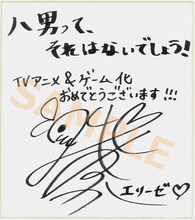 八男って、
それはないでしょう!
TVアニメ&ゲーム化
おめでとうございます!!!
SAMPLE
エリーゼ♡